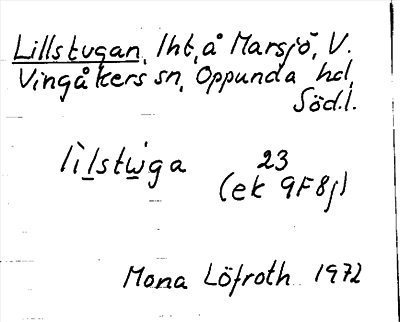 Lillstugan, lht, å Marsjö, V.
Vingåkers sn, Oppunda hd,
Södl.
lìlstu̇ga 23
(ek 9F8f)
Mona Löfroth 1972